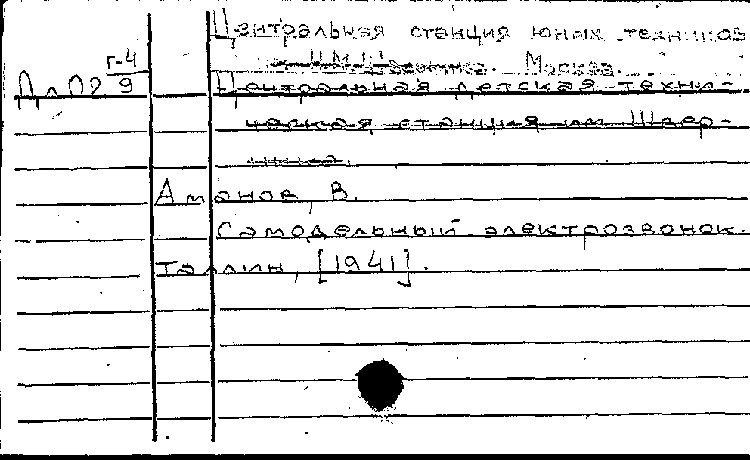 Центральная станция юных техников
им. Н.М. Шверника. Москва.
Г-4
Дл02 9
Центральная детская техни-
ческая станция им Швер-
ника.
Амонов, В.
Самодельный электрозвонок.
Таллин, [1941].